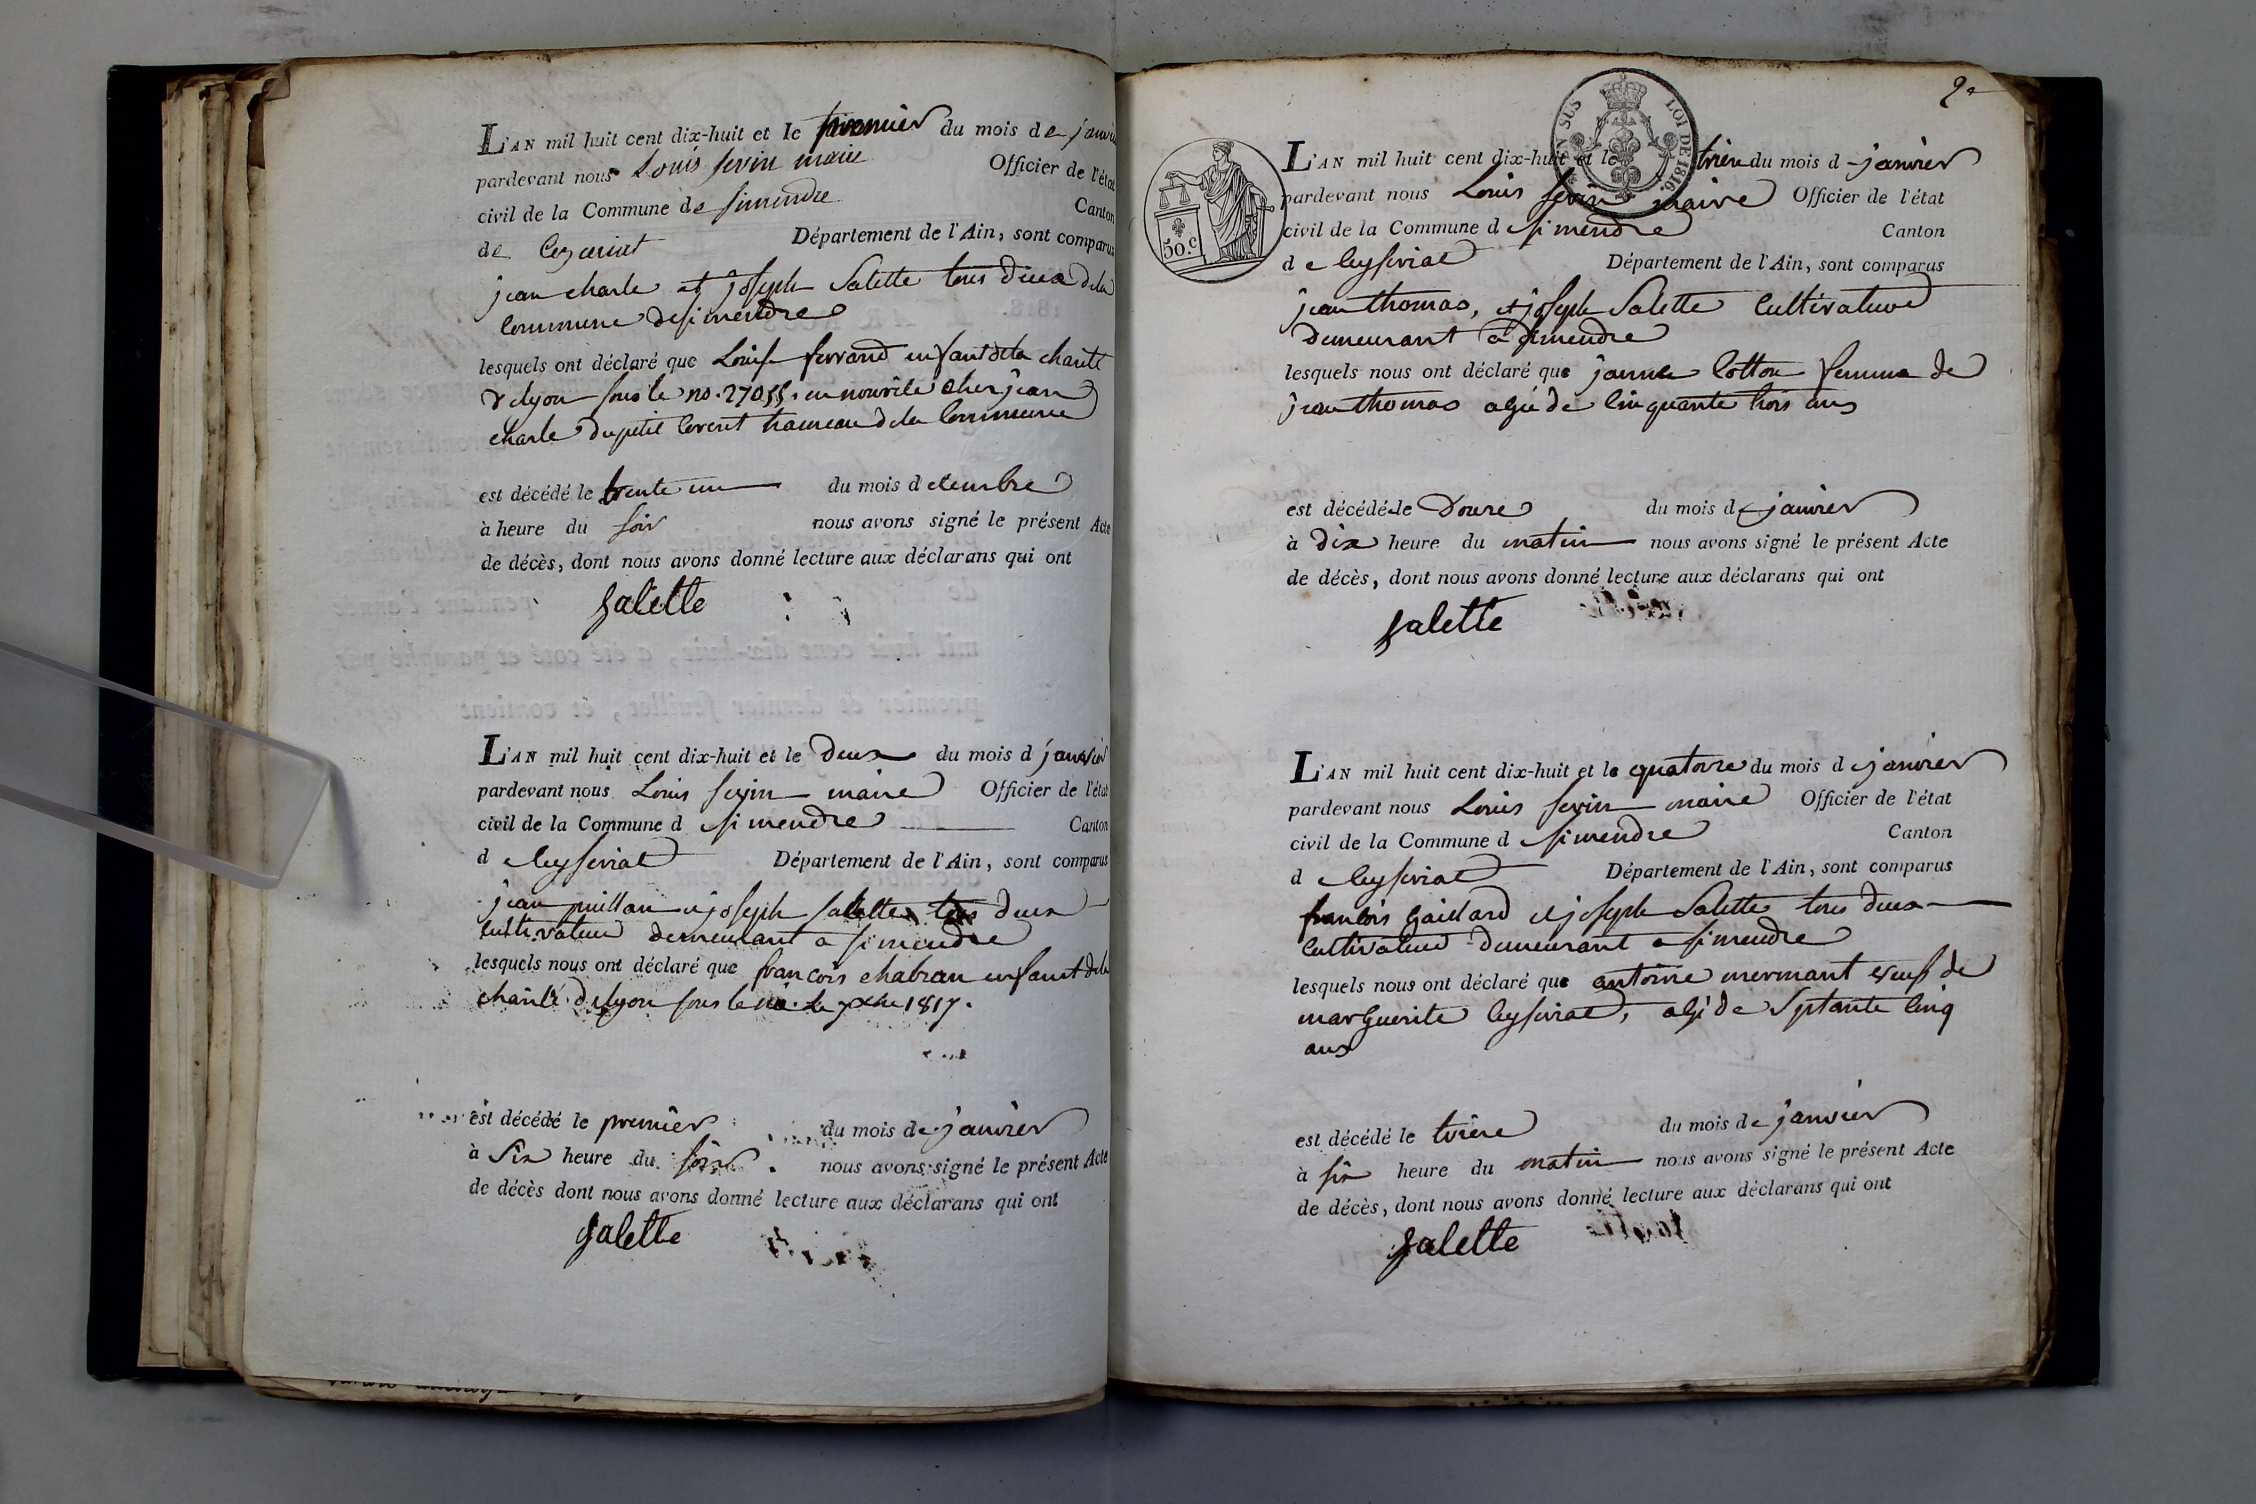 L'AN mil huit cent dix-huit et le premier du mois de janvier
pardevant nous Louis sevin maire Officier de l'état
civil de la Commune de simendre Canton
de Cezeriat Département de l'Ain, sont comparus
jean charle et joseph Salette tous deux dela
Commune de simendre
lesquels ont déclaré que Louise ferrand enfant dela charité
de lyon sous le no. 27055. en nourice cher jean
charle du petit Corent hameau dela Commune
est décédé le trente un du mois d cembre
à heure du soir nous avons signé le présent Acte
de décès, dont nous avons donné lecture aux déclarans qui ont
Salette
L'AN mil huit cent dix-huit et le deux du mois d janvier
pardevant nous Louis sevin maire Officier de l'état
civil de la Commune d simendre Canton
d Ceyseriat Département de l'Ain, sont comparus
jean puillan et joseph salette tous deux
Cultivateur demeurant a simendre
lesquels nous ont déclaré que francois chabran enfant dela
charité de lyon sous le no. le 7xbre 1817.
est décédé le premier du mois de janvier
à Six heure du soir nous avons signé le présent Acte
de décès dont nous avons donné lecture aux déclarans qui ont
Salette
2e
EN SUS LOI DE 1816.
50.c
L'AN mil huit cent dix-huit et le du mois d janvier
pardevant nous Louis sevin maire Officier de l'état
civil de la Commune d simendre Canton
d Ceyseriat Département de l'Ain, sont comparus
jean thomas, et joseph Salette Cultivateur
Demeurant à simendre
lesquels nous ont déclaré que janne Cotton femme de
jean thomas agé de Cinquante trois ans
est décédé le Douze du mois de janvier
à Dix heure du matin nous avons signé le présent Acte
de décès, dont nous avons donné lecture aux déclarans qui ont
Salette
L'AN mil huit cent dix-huit et le quatorze du mois d janvier
pardevant nous Louis sevin maire Officier de l'état
civil de la Commune d simendre Canton
d Ceyseriat Département de l'Ain, sont comparus
francois Gaillard et joseph Salette tous deux
Cultivateur demeurant a simendre
lesquels nous ont déclaré que antoine mermant veuf de
marguerite Ceyseriat, agé de Septante Cinq
ans
est décédé le treize du mois de janvier
à six heure du matin nous avons signé le présent Acte
de décès, dont nous avons donné lecture aux déclarans qui ont
Salette